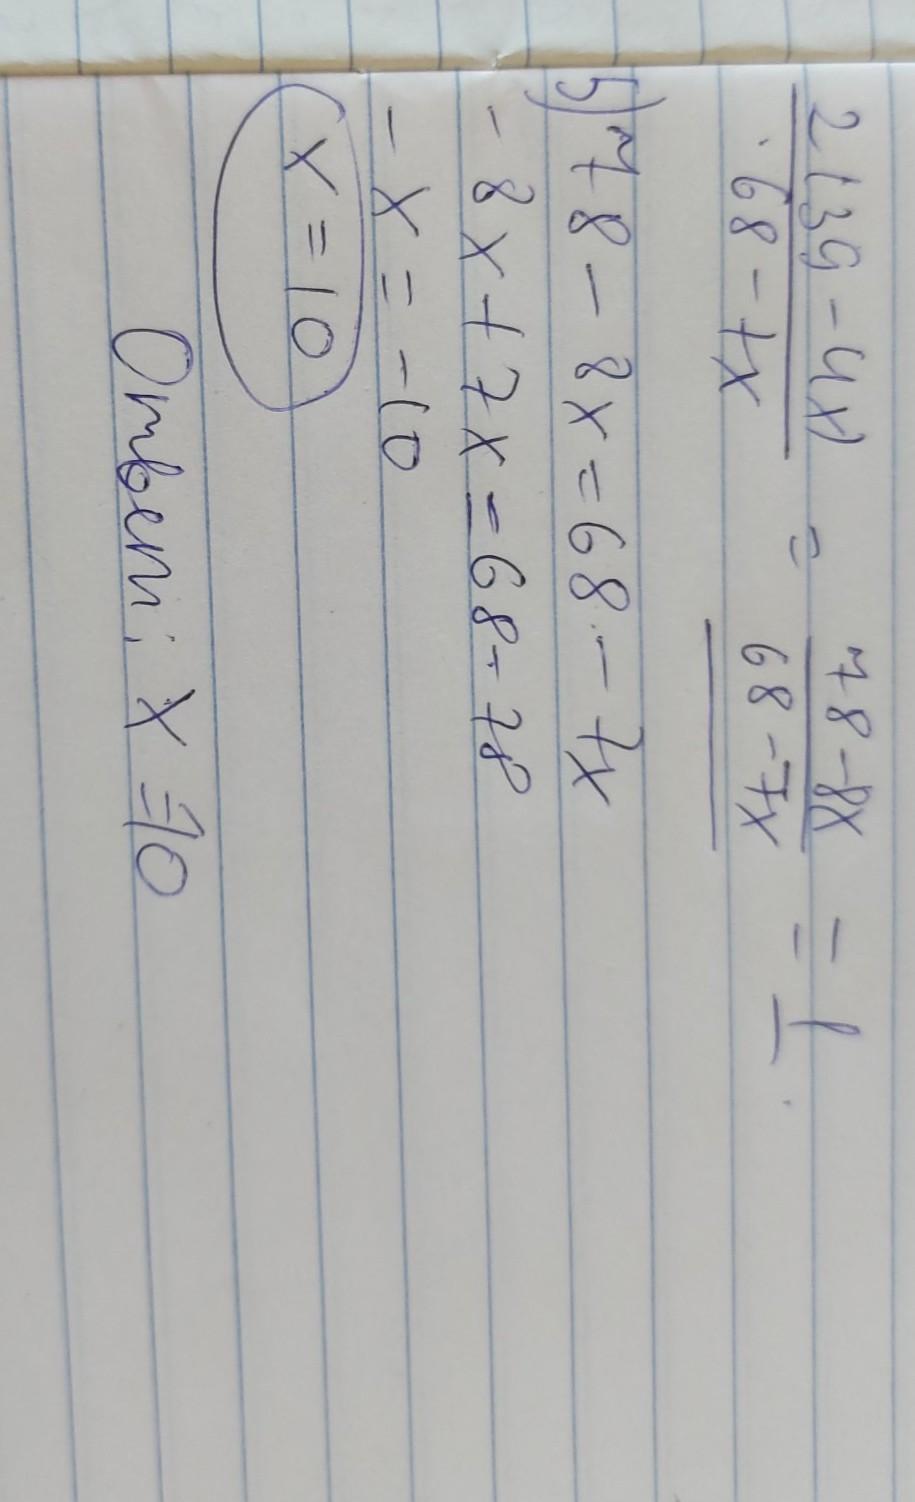 2(39-4x) / 68-7x = 78-8x / 68-7x = 1
5) 78-8x=68-7x
-8x+7x=68-78
-x=-10
x=10
Ответ: x=10